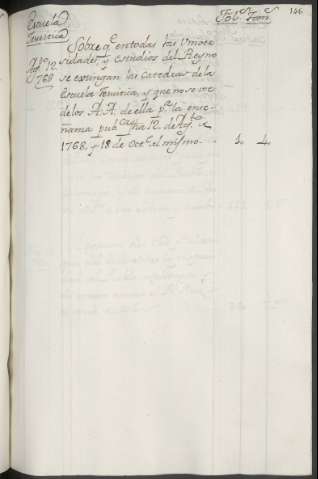 Escuela
Jesuitica
Fol.s Tom.
146
Agto 12
1768
Sobre q.e en todas las Univer
sidades, y estudios del Reyno
se extingan las Catedras de la
Escuela Jesuitica, y que no se use
de los A.A. de ella p.a la ense
ñanza pub.ca fha 12 de Ag.to de
1768. y 18 de Oct.e el mismo
4